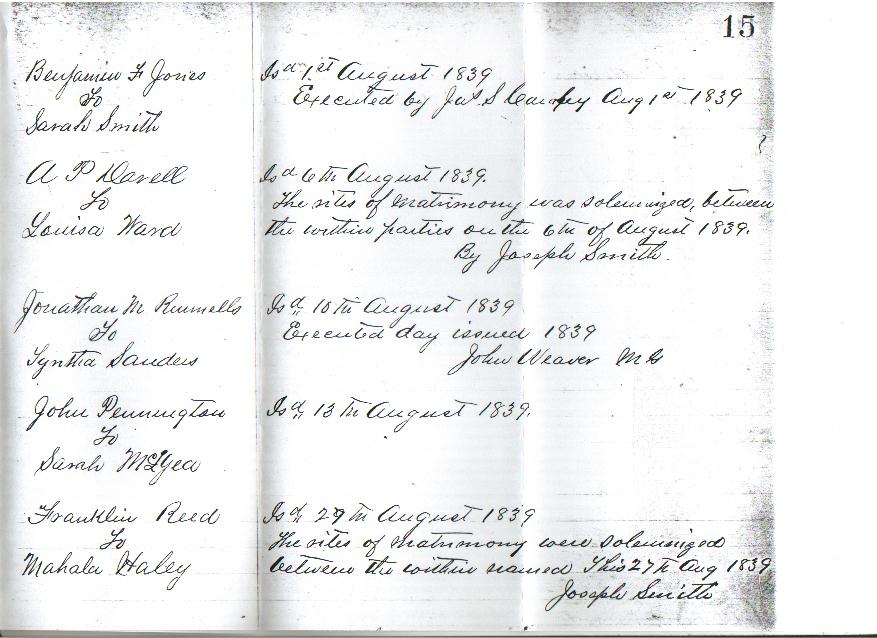 15
Benjamin F Jones
To
Sarah Smith
Isd 1st August 1839
Executed by Jas S Aug 1st 1839
A P Davell
To
Louisa Ward
Isd 6th August 1839.
The rites of matrimony was solemnized, between
the within parties on the 6th of August 1839.
By Joseph Smith.
Jonathan M Runnells
To
Synthia Sanders
Isd, 10th August 1839
Executed day issued 1839
John Weaver MG
John Pennington
To
Sarah
Isd, 13th August 1839.
Franklin Reed
To
Mahala Haley
Isd, 29th August 1839
The rites of matrimony were solemnized
between the within named This 27th Aug 1839
Joseph Smith